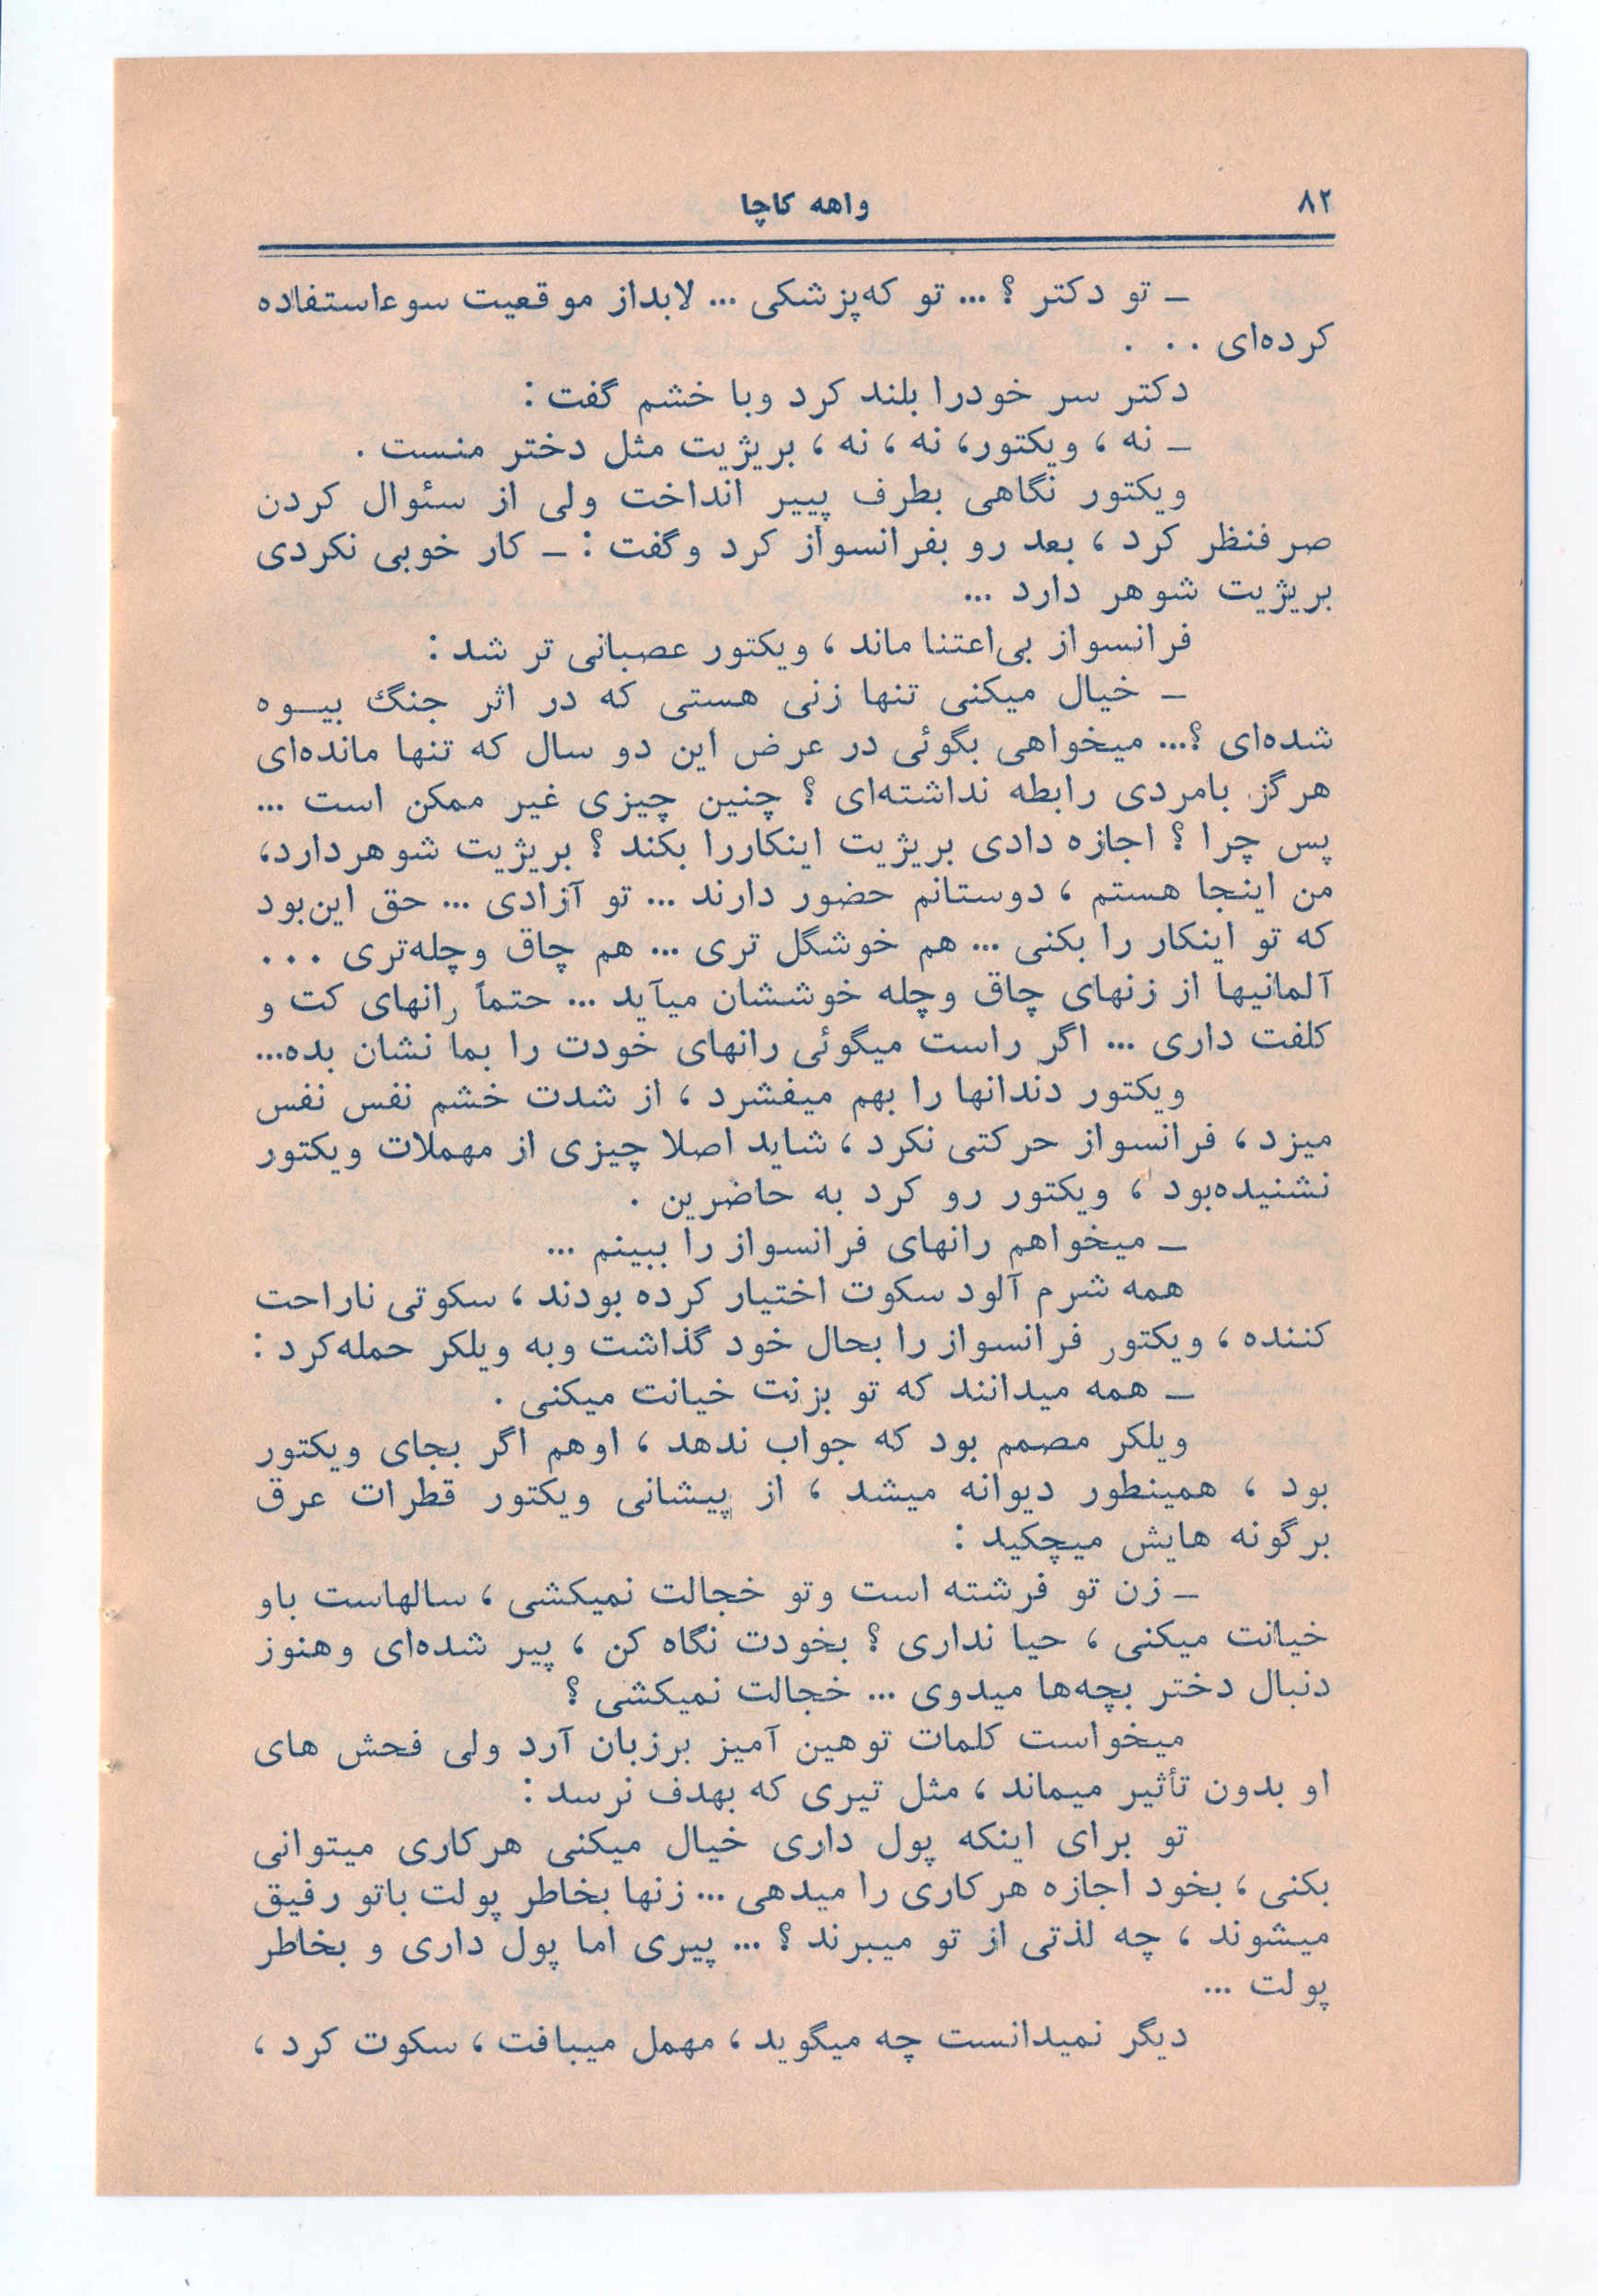 ۸۲
واهه کاچا
ـ تو دکتر ؟ ... تو که‌پزشکی ... لابداز موقعیت سوءاستفاده
کرده‌ای . . .
دکتر سر خودرا بلند کرد وبا خشم گفت :
ـ نه ، ویکتور، نه ، نه ، بریژیت مثل دختر منست .
ویکتور نگاهی بطرف پییر انداخت ولی از سئوال کردن
صرفنظر کرد ، بعد رو بفرانسواز کرد وگفت : ـ کار خوبی نکردی
بریژیت شوهر دارد ...
فرانسواز بی‌اعتنا ماند ، ویکتور عصبانی تر شد :
ـ خیال میکنی تنها زنی هستی که در اثر جنگ بیـوه
شده‌ای ؟... میخواهی بگوئی در عرض این دو سال که تنها مانده‌ای
هرگز بامردی رابطه نداشته‌ای ؟ چنین چیزی غیر ممکن است ...
پس چرا ؟ اجازه دادی بریژیت اینکاررا بکند ؟ بریژیت شوهردارد،
من اینجا هستم ، دوستانم حضور دارند ... تو آزادی ... حق این‌بود
که تو اینکار را بکنی ... هم خوشگل تری ... هم چاق وچله‌تری ...
آلمانیها از زنهای چاق وچله خوششان میآید ... حتماً رانهای کت و
کلفت داری ... اگر راست میگوئی رانهای خودت را بما نشان بده...
ویکتور دندانها را بهم میفشرد ، از شدت خشم نفس نفس
میزد ، فرانسواز حرکتی نکرد ، شاید اصلا چیزی از مهملات ویکتور
نشنیده‌بود ، ویکتور رو کرد به حاضرین .
ـ میخواهم رانهای فرانسواز را ببینم ...
همه شرم آلود سکوت اختیار کرده بودند ، سکوتی ناراحت
کننده ، ویکتور فرانسواز را بحال خود گذاشت وبه ویلکر حمله‌کرد :
ـ همه میدانند که تو بزنت خیانت میکنی .
ویلکر مصمم بود که جواب ندهد ، اوهم اگر بجای ویکتور
بود ، همینطور دیوانه میشد ، از پیشانی ویکتور قطرات عرق
برگونه هایش میچکید :
ـ زن تو فرشته است وتو خجالت نمیکشی ، سالهاست باو
خیانت میکنی ، حیا نداری ؟ بخودت نگاه کن ، پیر شده‌ای وهنوز
دنبال دختر بچه‌ها میدوی ... خجالت نمیکشی ؟
میخواست کلمات توهین آمیز برزبان آرد ولی فحش های
او بدون تأثیر میماند ، مثل تیری که بهدف نرسد :
تو برای اینکه پول داری خیال میکنی هرکاری میتوانی
بکنی ، بخود اجازه هرکاری را میدهی ... زنها بخاطر پولت باتو رفیق
میشوند ، چه لذتی از تو میبرند ؟ ... پیری اما پول داری و بخاطر
پولت ...
دیگر نمیدانست چه میگوید ، مهمل میبافت ، سکوت کرد ،